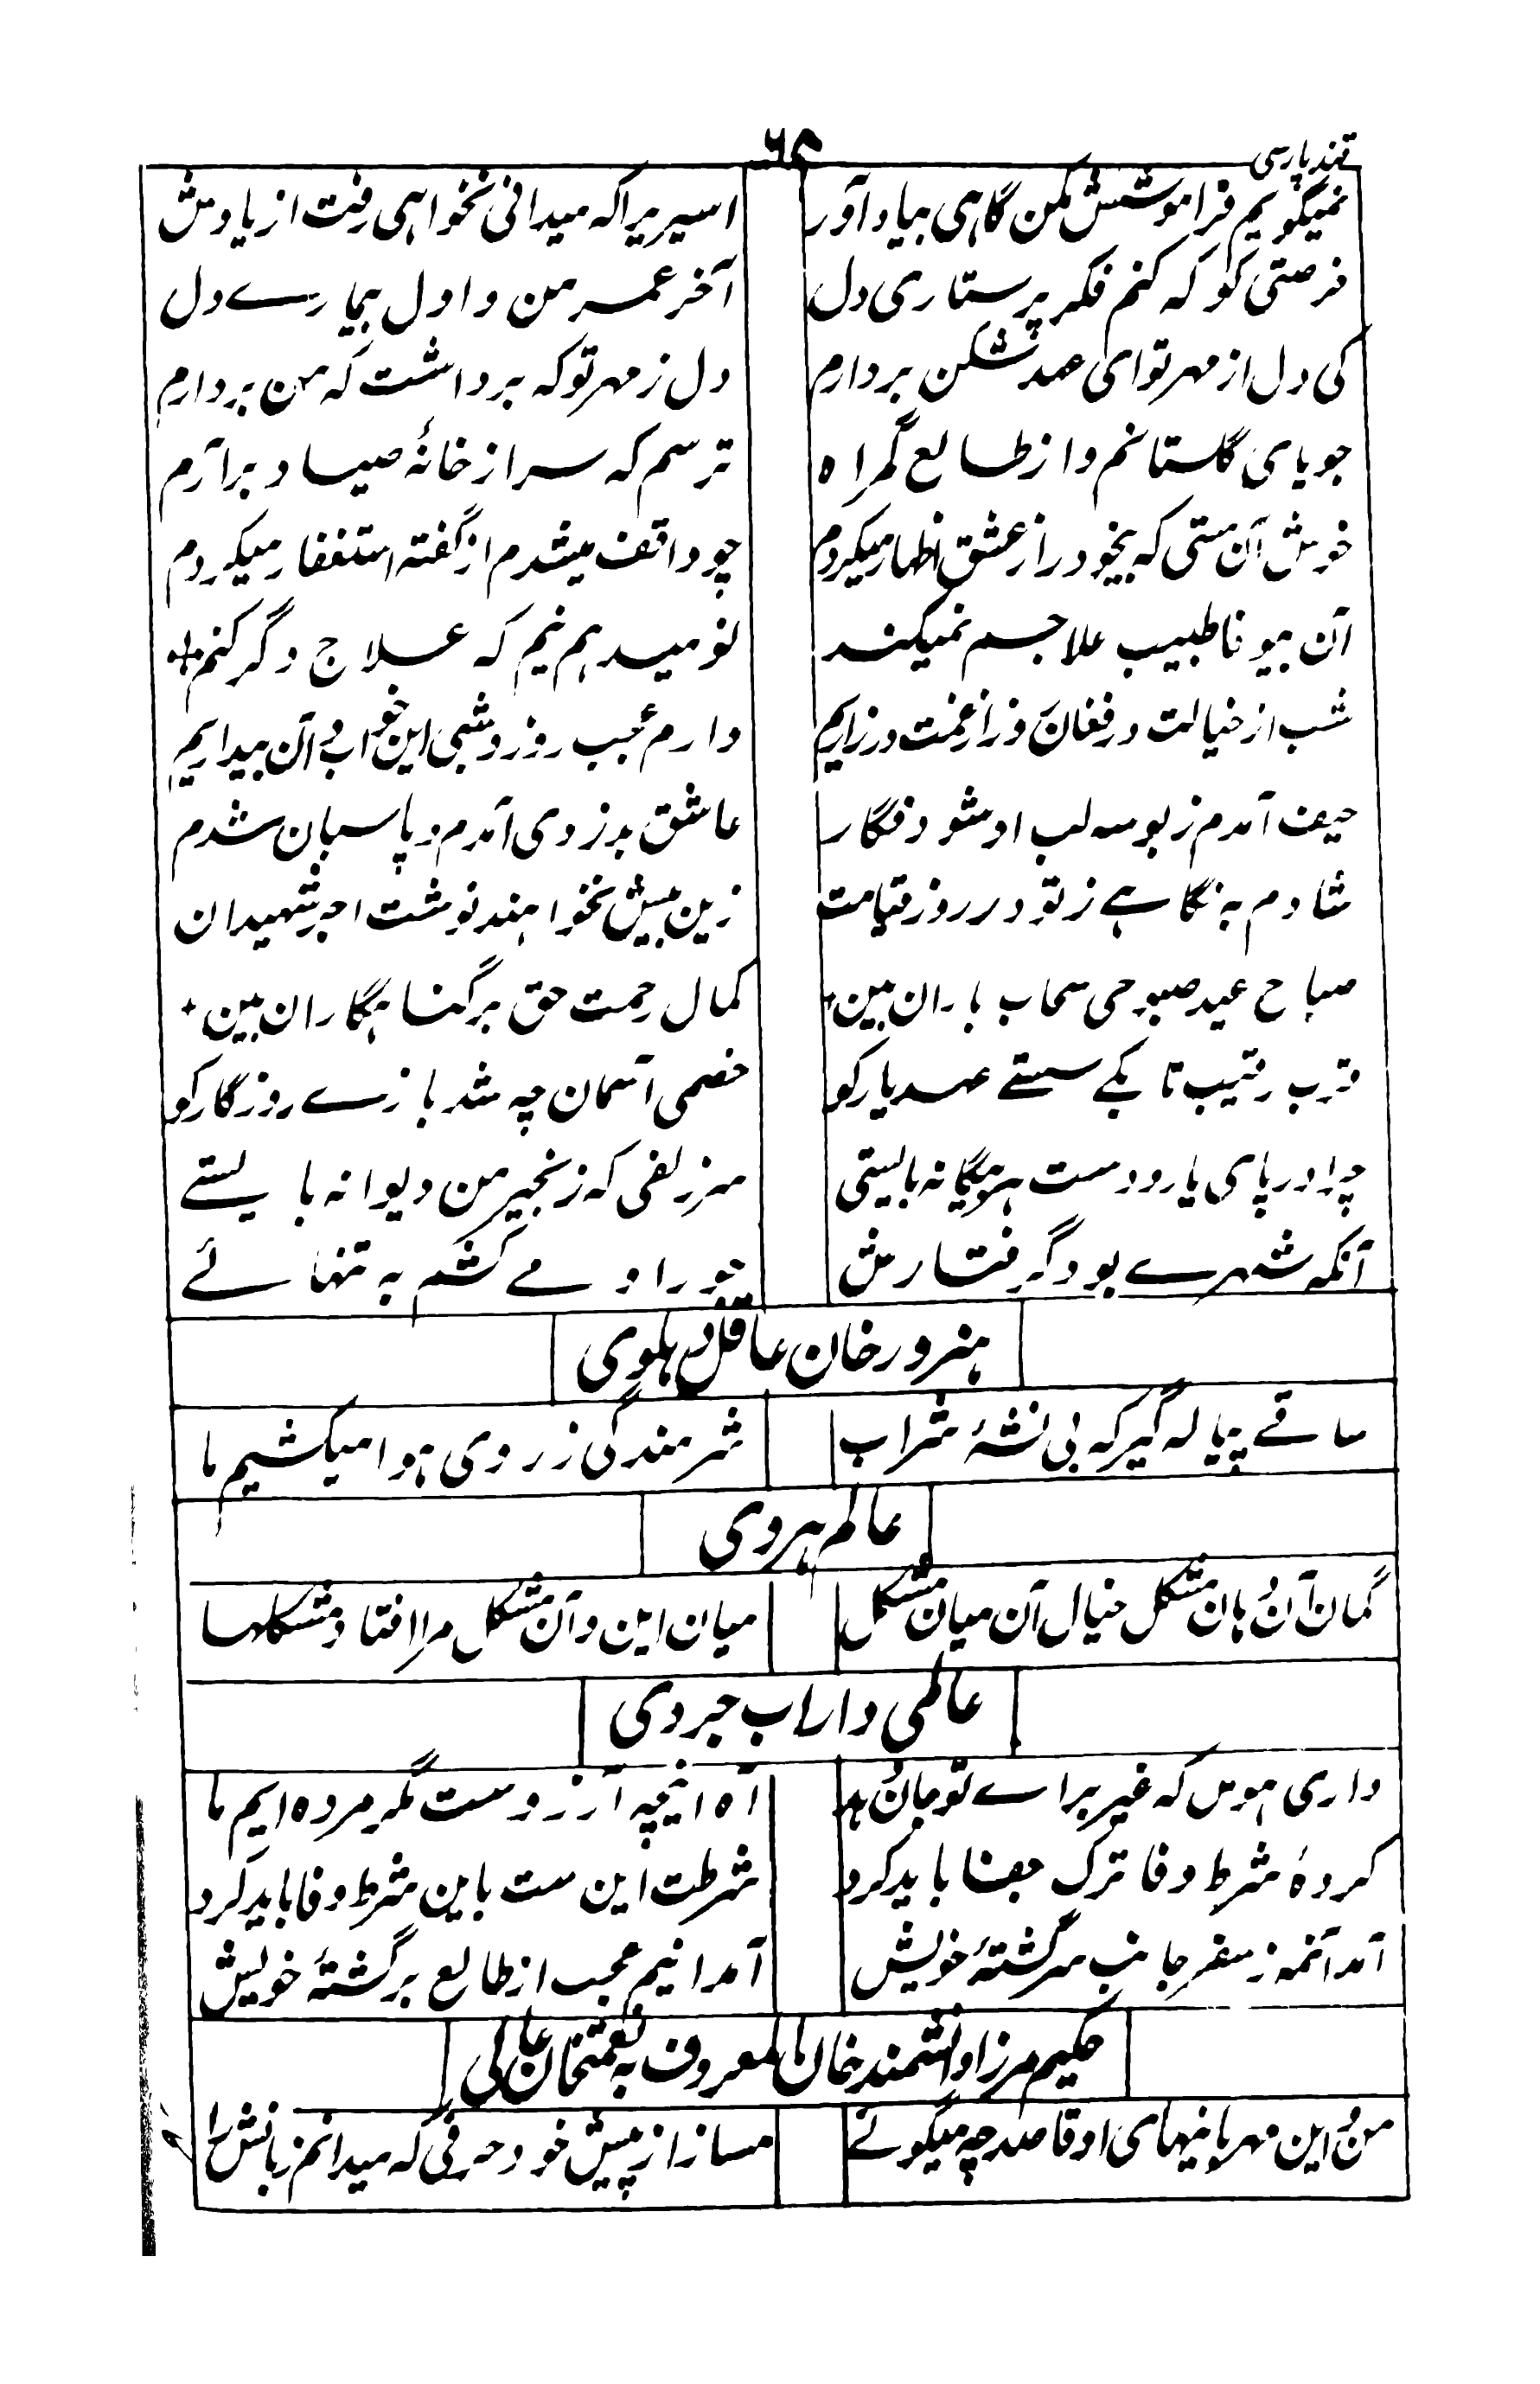 قند پارسی
۶۵
نمیگویم فراموشش مکن گاهی بیاد آور
اسیریرا که میدانی نخواهی رفت از یادش
فرصتی کو که کنم فکر پرستاری دل
آخر عمر من و اول بیمارے دل
کی دل از مهر تو ای عهد شکن بردارم
دل ز مهر تو که برداشت که من بردارم
جویای گلستانم و از طالع گمراه
ترسم که سر از خانهٔ صیاد برآرم
خوش آن مستی که بیخود راز عشق اظهار میکردم
چو واقف میشدم از گفته استغفار میکردم
آن بیوفا طبیب علاجم نمیکند
نومید هم نیم که علاج دگر کنم
شب از خیالت در فغان روز از غمت در زاریم
دارم عجب روز و شبی این خواب و آن بیداریم
حیف آمدم ز بوسه لب او شود فگار
عاشق بدزدی آمدم و پاسبان شدم
شادم به نگاہے ز تو در روز قیامت
زین بیش نخواهند نوشت اجر شهیدان
صباح عید صبوحی سحاب باران بین
کمال رحمت حق بر گناهگاران بین
قرب رقیب تا بکے سستے عهد یار کو
خصمی آسمان چه شد بازے روزگار کو
چرا در پای یار و دست هر بیگانه بایستی
سر زلفی که زنجیر من دیوانه بایستے
آنکه شهرے بود گرفتارش
جور او مے کشم به تنهائے
هنرور خان عاقل دهلوی
ساقے پیاله گیر که بی نشهٔ شراب
شرمندگی ز روی هوا میکشیم ما
عالم هروی
گمان آن دهان مشکل خیال آن میان مشکل
میان این و آن مشکل مرا افتاد مشکلها
عالمی داراب جردی
داری هوس که غیر براے تو جان دهد
آه اینچه آرزوست مگر مرده ایم ما
کردهٔ شرط وفا ترک جفا باید کرد
شرطت این ست باین شرط وفا باید کرد
آمد آنمه ز سفر جانب سرگشتهٔ خویش
آمدا نیم عجب از طالع برگشتهٔ خویش
حکیم مرزا دانشمند خان المعروف به نعمتخان عالی
من و این مهربانیهای او قاصد چه میگوئے
مساز از پیش خود حرفی که میدانم زبانش را